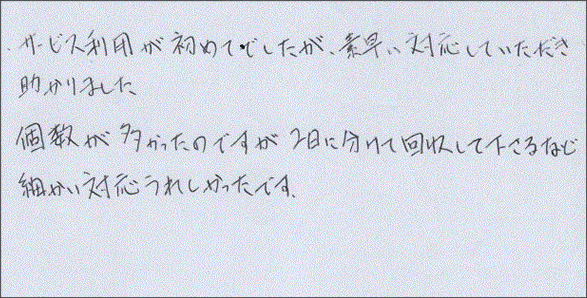 ・サービス利用が初めてでしたが、素早い対応していただき
助かりました
個数が多かったのですが2日に分けて回収して下さるなど
細かい対応うれしかったです。